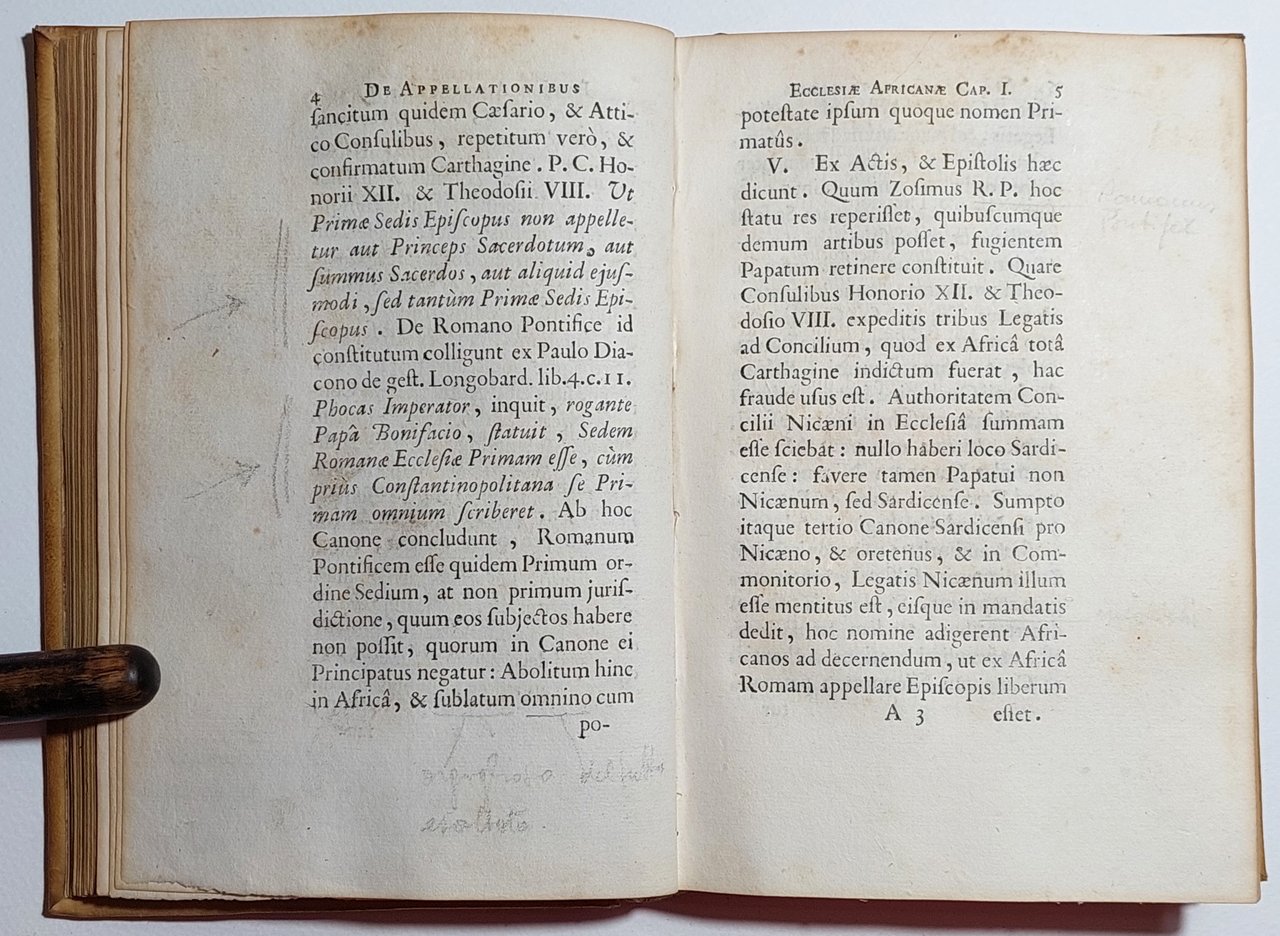 4 DE APPELLATIONIBUS
ſancitum quidem Cæſario, & Atti-
co Conſulibus, repetitum verò, &
confirmatum Carthagine. P. C. Ho-
norii XII. & Theodoſii VIII. Ut
Primæ Sedis Epiſcopus non appelle-
tur aut Princeps Sacerdotum, aut
ſummus Sacerdos, aut aliquid ejuſ-
modi, ſed tantùm Primæ Sedis Epi-
ſcopus. De Romano Pontifice id
conſtitutum colligunt ex Paulo Dia-
cono de geſt. Longobard. lib.4.c.11.
Phocas Imperator, inquit, rogante
Papâ Bonifacio, ſtatuit, Sedem
Romanæ Eccleſiæ Primam eſſe, cùm
priùs Conſtantinopolitana ſe Pri-
mam omnium ſcriberet. Ab hoc
Canone concludunt, Romanum
Pontificem eſſe quidem Primum or-
dine Sedium, at non primum juriſ-
dictione, quum eos ſubjectos habere
non poſſit, quorum in Canone ei
Principatus negatur: Abolitum hinc
in Africâ, & ſublatum omnino cum
po-
ECCLESIÆ AFRICANÆ CAP. I. 5
poteſtate ipſum quoque nomen Pri-
matûs.
V. Ex Actis, & Epiſtolis hæc
dicunt. Quum Zoſimus R. P. hoc
ſtatu res reperiſſet, quibuſcumque
demum artibus poſſet, fugientem
Papatum retinere conſtituit. Quare
Conſulibus Honorio XII. & Theo-
doſio VIII. expeditis tribus Legatis
ad Concilium, quod ex Africâ totâ
Carthagine indictum fuerat, hac
fraude uſus eſt. Authoritatem Con-
cilii Nicæni in Eccleſiâ ſummam
eſſe ſciebat: nullo haberi loco Sardi-
cenſe: favere tamen Papatui non
Nicænum, ſed Sardicenſe. Sumpto
itaque tertio Canone Sardicenſi pro
Nicæno, & oretenus, & in Com-
monitorio, Legatis Nicænum illum
eſſe mentitus eſt, eiſque in mandatis
dedit, hoc nomine adigerent Afri-
canos ad decernendum, ut ex Africâ
Romam appellare Epiſcopis liberum
A 3 eſſet.